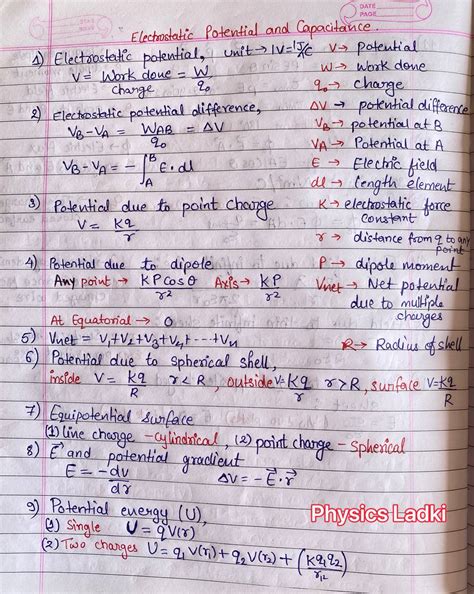 DATE
PAGE
Electrostatic Potential and Capacitance.
1) Electrostatic potential, unit → 1V = 1J/C V → Potential
V = Work done / charge = W / q₀ W → Work done
q₀ → charge
2) Electrostatic potential difference, ΔV → potential difference
V_B - V_A = W_AB / q₀ = ΔV V_B → potential at B
V_A → Potential at A
V_B - V_A = - ∫_A^B E . dl E → Electric field
dl → length element
3) Potential due to point charge K → electrostatic force constant
V = Kq / r r → distance from q to any point
4) Potential due to dipole P → dipole moment
Any point → KP cos θ / r² Axis → KP / r² Vnet → Net potential due to multiple charges
At Equatorial → 0
5) Vnet = V₁+V₂+V₃+V₄+---+Vn R → Radius of shell
6) Potential due to spherical shell,
inside V = Kq / R r < R , outside V = Kq / r r > R, surface V = Kq / R
7) Equipotential surface
(1) line charge - Cylindrical , (2) point charge - Spherical
8) E⃗ and potential gradient
E = - dv / dr ΔV = - E⃗ . r⃗
9) Potential energy (U),
(1) Single U = q V(r)
(2) Two charges U = q₁ V(r₁) + q₂ V(r₂) + (K q₁ q₂ / r₁₂)
Physics Ladki